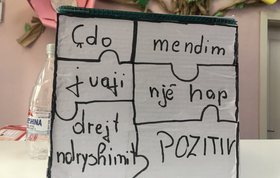 Çdo mendim
juaji një hap
drejt
ndryshimit POZITIV